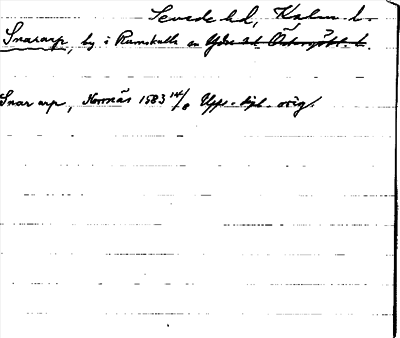 Sevede hd, Kalm l.
Snararp, by i Rumskulla sn Ydre hd Östergötl. l.
Snararp, Hornäs 1583 14/8 Upps. dipl. orig.